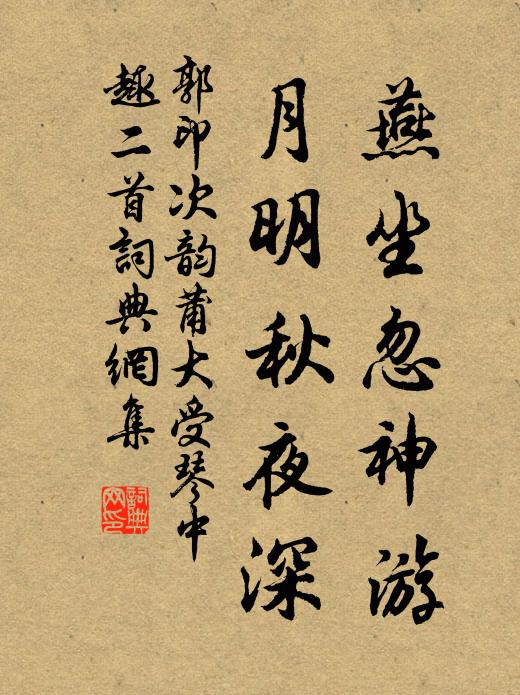 燕坐忽神游
月明秋夜深
郭印次韵蒲大受琴中
趣二首詞典網集
詞典网印